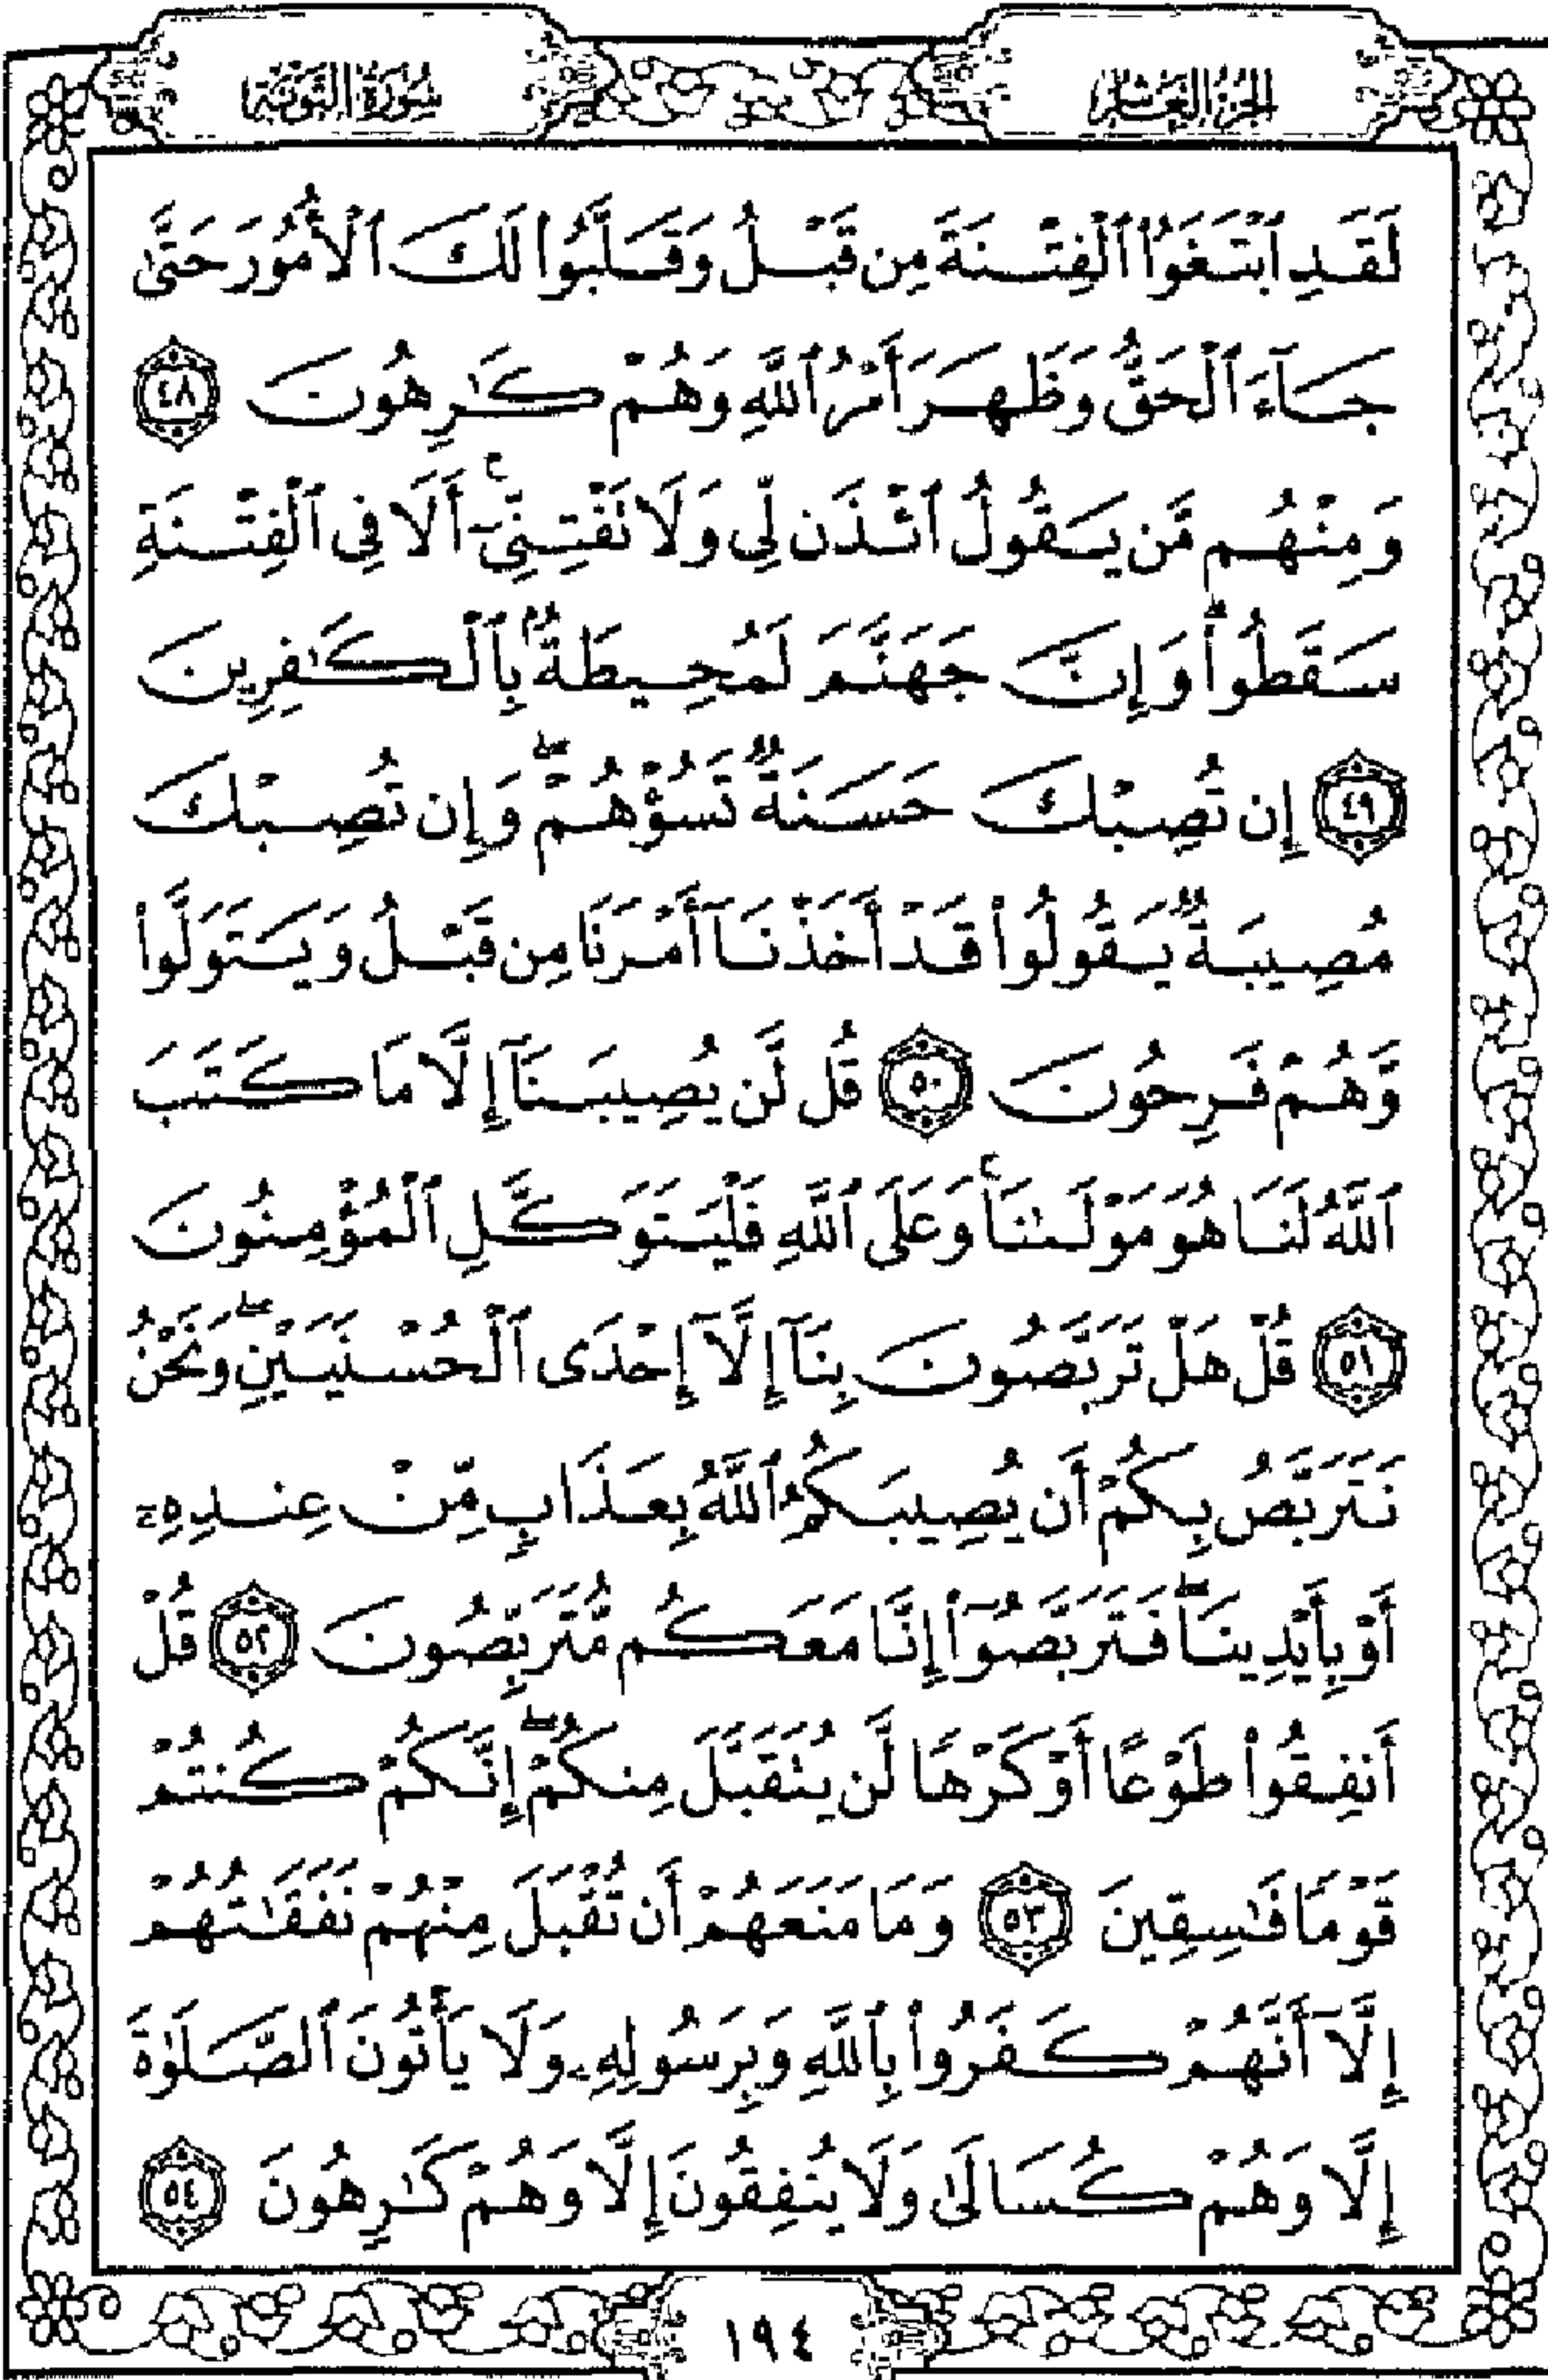 الجزء العاشر
سورة التوبة
لَقَدِ ٱبْتَغَوُا۟ ٱلْفِتْنَةَ مِن قَبْلُ وَقَلَّبُوا۟ لَكَ ٱلْأُمُورَ حَتَّىٰ
جَآءَ ٱلْحَقُّ وَظَهَرَ أَمْرُ ٱللَّهِ وَهُمْ كَـٰرِهُونَ ٤٨
وَمِنْهُم مَّن يَقُولُ ٱئْذَن لِّى وَلَا تَفْتِنِّىٓ ۚ أَلَا فِى ٱلْفِتْنَةِ
سَقَطُوا۟ ۗ وَإِنَّ جَهَنَّمَ لَمُحِيطَةٌۢ بِٱلْكَـٰفِرِينَ
٤٩ إِن تُصِبْكَ حَسَنَةٌ تَسُؤْهُمْ ۖ وَإِن تُصِبْكَ
مُصِيبَةٌ يَقُولُوا۟ قَدْ أَخَذْنَآ أَمْرَنَا مِن قَبْلُ وَيَتَوَلَّوا۟
وَّهُمْ فَرِحُونَ ٥٠ قُل لَّن يُصِيبَنَآ إِلَّا مَا كَتَبَ
ٱللَّهُ لَنَا هُوَ مَوْلَىٰنَا ۚ وَعَلَى ٱللَّهِ فَلْيَتَوَكَّلِ ٱلْمُؤْمِنُونَ
٥١ قُلْ هَلْ تَرَبَّصُونَ بِنَآ إِلَّآ إِحْدَى ٱلْحُسْنَيَيْنِ ۖ وَنَحْنُ
نَتَرَبَّصُ بِكُمْ أَن يُصِيبَكُمُ ٱللَّهُ بِعَذَابٍ مِّنْ عِندِهِۦٓ
أَوْ بِأَيْدِينَا ۖ فَتَرَبَّصُوٓا۟ إِنَّا مَعَكُم مُّتَرَبِّصُونَ ٥٢ قُلْ
أَنفِقُوا۟ طَوْعًا أَوْ كَرْهًا لَّن يُتَقَبَّلَ مِنكُمْ ۖ إِنَّكُمْ كُنتُمْ
قَوْمًا فَـٰسِقِينَ ٥٣ وَمَا مَنَعَهُمْ أَن تُقْبَلَ مِنْهُمْ نَفَقَـٰتُهُمْ
إِلَّآ أَنَّهُمْ كَفَرُوا۟ بِٱللَّهِ وَبِرَسُولِهِۦ وَلَا يَأْتُونَ ٱلصَّلَوٰةَ
إِلَّا وَهُمْ كُسَالَىٰ وَلَا يُنفِقُونَ إِلَّا وَهُمْ كَـٰرِهُونَ ٥٤
١٩٤